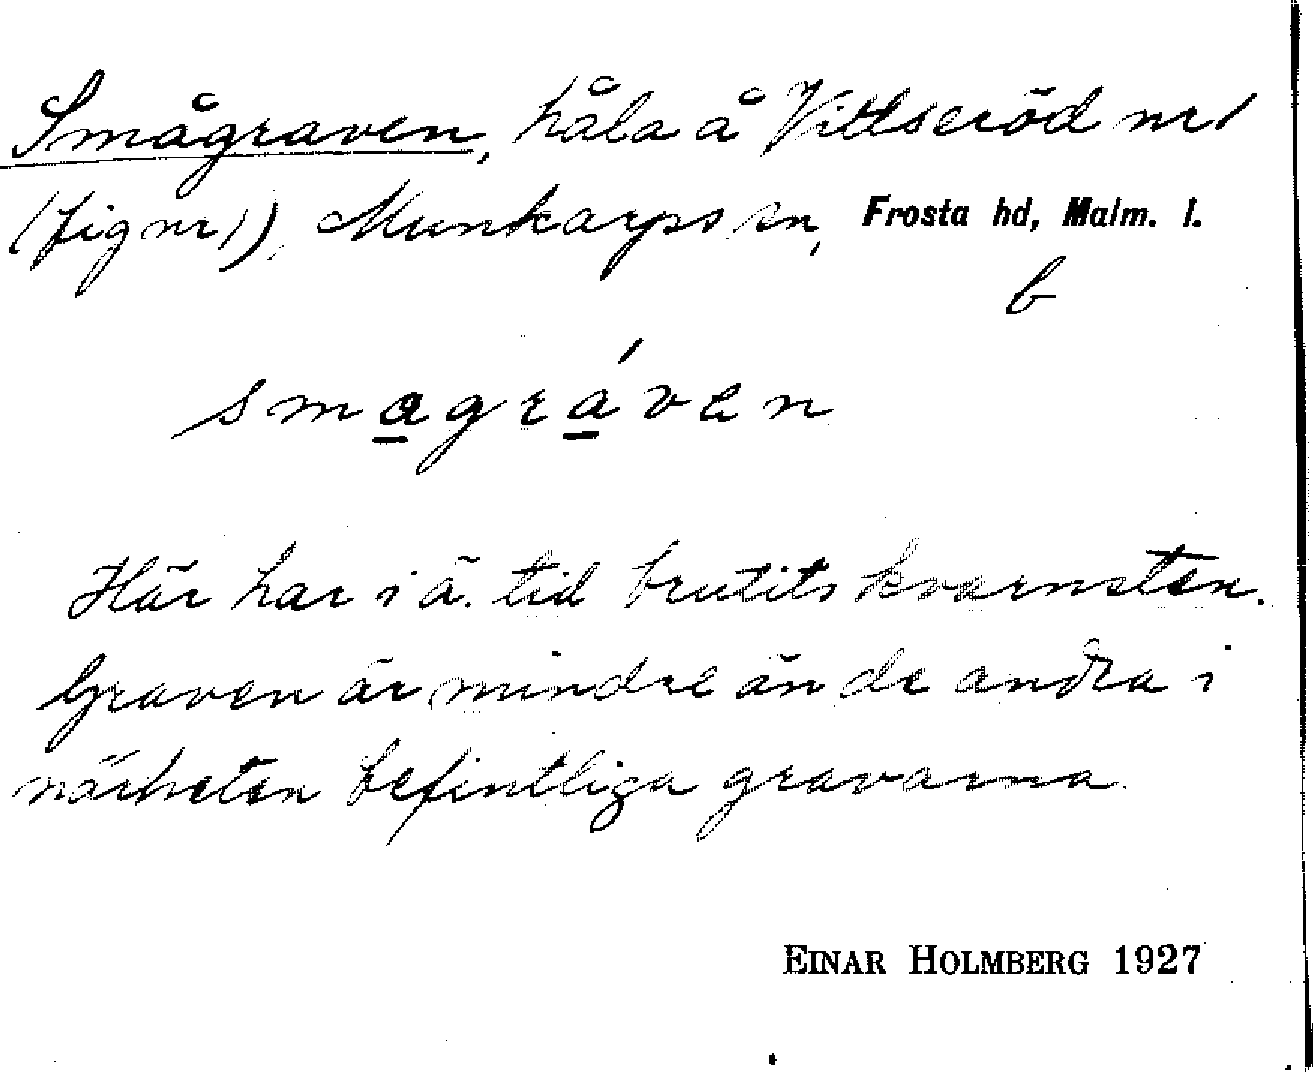 Smågraven, håla å Vittseröd nr 1
(fig nr 1), Munkarps sn, Frosta hd, Malm. l.
b
smagráven
Här har i ä. tid brutits kvarnsten.
Graven är mindre än de andra i
närheten befintliga gravarna.
EINAR HOLMBERG 1927